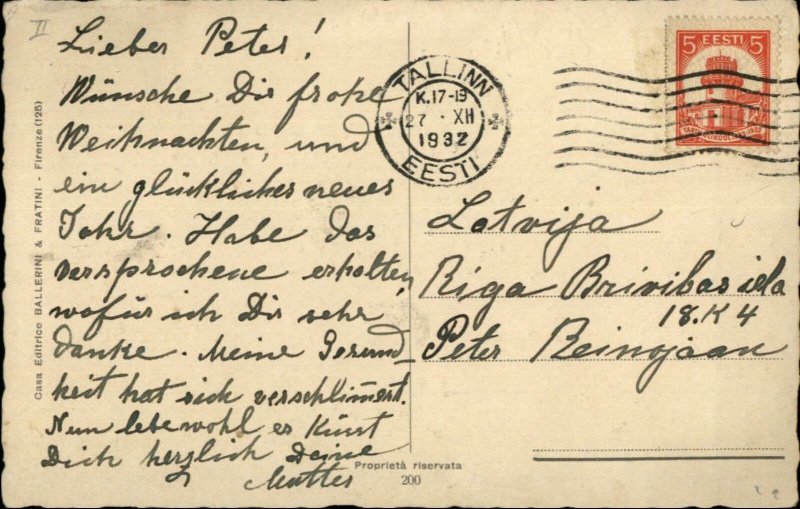 II
Lieber Peter!
Wünsche Dir frohe
Weihnachten, und
ein glückliches neues
Jahr. Habe das
versprochene erhalten,
wofür ich Dir sehr
danke. Meine Gesund
heit hat sich verschlimert.
Nun lebe wohl es Küst
Dich herzlich Deine
Mutter
Casa Editrice BALLERINI & FRATINI - Firenze (125)
Proprietà riservata
200
TALLINN
K.17-19
27 · XII
1932
EESTI
5 EESTI 5
Latvija
Riga Brivibas iela
18. K 4
Peter Beinojaan